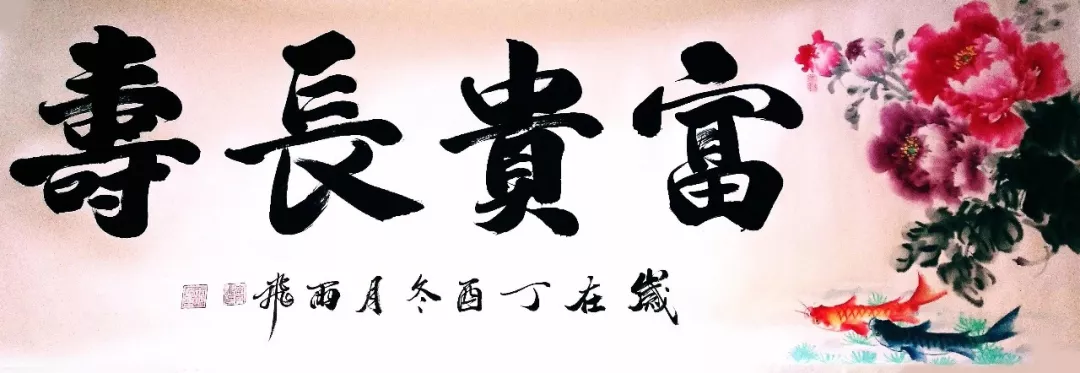 富貴長壽
歲在丁酉冬月雨飛